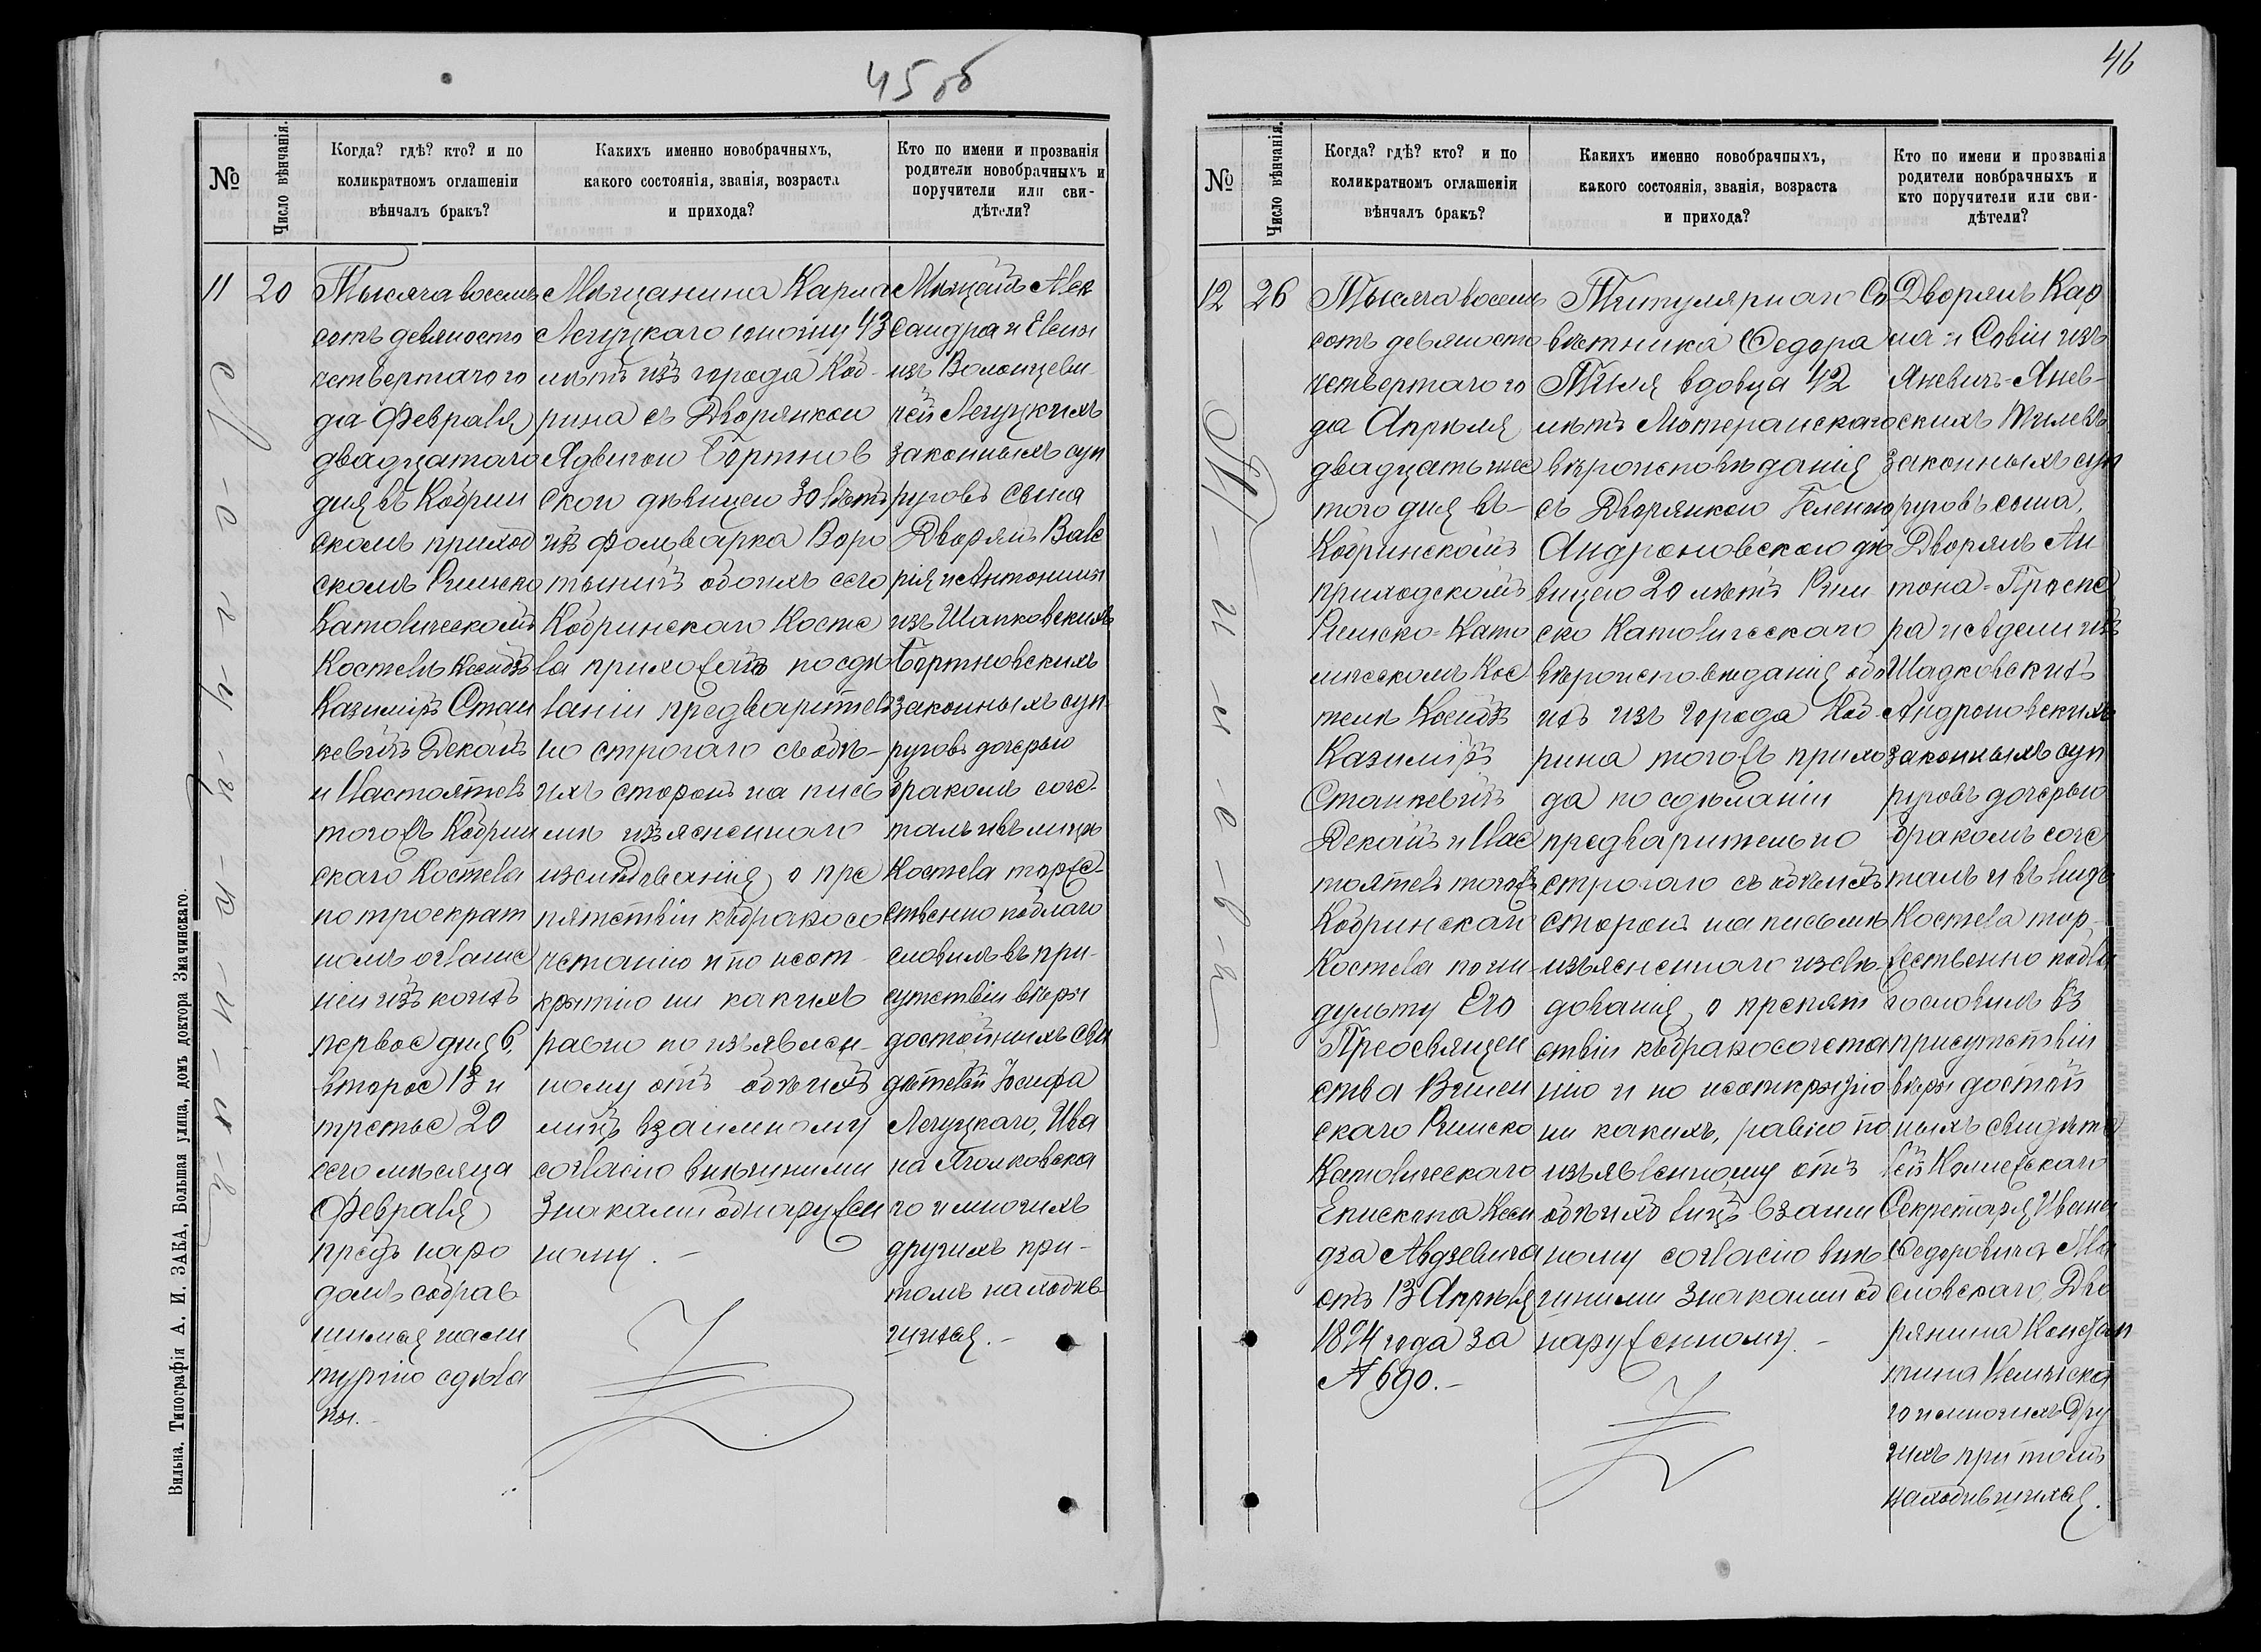 45 об
№
Число вѣнчанія.
Когда? гдѣ? кто? и по
коликратномъ оглашеніи
вѣнчалъ бракъ?
Какихъ именно новобрачныхъ,
какого состоянія, званія, возраста
и прихода?
Кто по имени и прозванія
родители новобрачныхъ и
поручители или сви-
дѣтели?
11
20
Тысяча восемь
сотъ девяносто
четвертаго го
да Февраля
двадцатаго
дня въ Кобрин
скомъ приход
скомъ Римско
Католическомъ
Костелѣ Ксендзъ
Казиміръ Стан
кевичъ Деканъ
и Настоятель
тогожъ Кобрин
скаго Костела
по троекрат
номъ оглаше
ніи изъ коихъ
первое дня 6,
второе 13 и
третье 20
сего мѣсяца
Февраля
предъ наро
домъ собрав
шимся на ли
тургію сдѣла
ны.
Мѣщанина Карла
Легуцкаго юношу 43
лѣтъ изъ города Коб-
рина съ Дворянкою
Ядвигою Бортнов
скою дѣвицею 30 лѣтъ
изъ фольварка Воро
тыничъ обоихъ сего
Кобринскаго Косте
ла прихожанъ по сдѣ
ланіи предварител
но строгаго съ обѣ-
ихъ сторонъ на пись
мѣ изъясненнаго
изслѣдованія, о пре
пятствіи къ бракосо
четанію и по неот-
крытію ни какихъ
равно по изъявлен-
ному отъ обѣихъ
лицъ взаимному
согласію внѣшними
знаками обнаружен
ному. -
Мѣщанъ Алек
сандра и Елены
изъ Волонцеви
чей Легуцкихъ
законныхъ суп
руговъ сына
Дворянъ Вале
рія и Антонины
изъ Шапковскихъ
Бортновскихъ
законныхъ суп-
руговъ дочерью
бракомъ соче-
талъ и въ лицѣ
Костела торже-
ственно поблаго
словилъ въ при-
сутствіи вѣры
достойныхъ сви
дѣтелей Іосифа
Легуцкаго, Ива
на
го и многихъ
другихъ при-
томъ находив
шихся. -
Вильна. Типографія А. И. ЗАКА, Большая улица, домъ доктора Значинскаго.
46
№
Число вѣнчанія.
Когда? гдѣ? кто? и по
коликратномъ оглашеніи
вѣнчалъ бракъ?
Какихъ именно новобрачныхъ,
какого состоянія, званія, возраста
и прихода?
Кто по имени и прозванія
родители новбрачныхъ и
кто поручители или сви-
дѣтели?
12
26
Тысяча восемь
сотъ девяносто
четвертаго го
да Апрѣля
двадцать шес
того дня въ
Кобринскомъ
приходскомъ
Римско-Като
лическомъ Кос
телѣ Ксендзъ
Казиміръ
Станкевичъ
Деканъ и Нас
тоятель тогожъ
Кобринскаго
Костела по ин
дульту Его
Преосвящен
ства Вилен
скаго Римско
Католическаго
Епископа Ксен
дза Авдзевича
отъ 13 Апрѣля
1894 года за
№ 690. -
Титулярнаго Со
вѣтника Федора
Тиля вдовца 42
лѣтъ Лютеранскаго
вѣроисповѣданія
съ Дворянкою Геленою
Андроновскою дѣ
вицею 20 лѣтъ Рим
ско Католическаго
вѣроисповѣданія обо
ихъ изъ города Коб-
рина тогожъ прихо
да по сдѣланіи
предварительно
строгаго съ обѣихъ
сторонъ на письмѣ
изъясненнаго изслѣ-
дованія, о препят
ствіи къ бракосочета
нію и по неоткрытію
ни какихъ, равно по
изъявленному отъ
обѣихъ лицъ взаим
ному согласію внѣ
шними знаками об
наруженному. -
Дворянъ Кар
ла и Софіи изъ
Яневичъ-Янев-
скихъ Тилевъ
законныхъ суп
руговъ сына,
Дворянъ Ан
тона-Проспе
ра и изъ
Шадковскихъ
Андроновскихъ
законныхъ суп
руговъ дочерью
бракомъ соче
талъ и въ лицѣ
Костела тор-
жественно побла
гословилъ въ
присутствіи
вѣры достой
ныхъ свидѣте
лей Коллежскаго
Секретаря Ивана
Федоровича Ма
словскаго, Дво
рянина Констан
тина
го и многихъ дру
гихъ при томъ
находившихся.